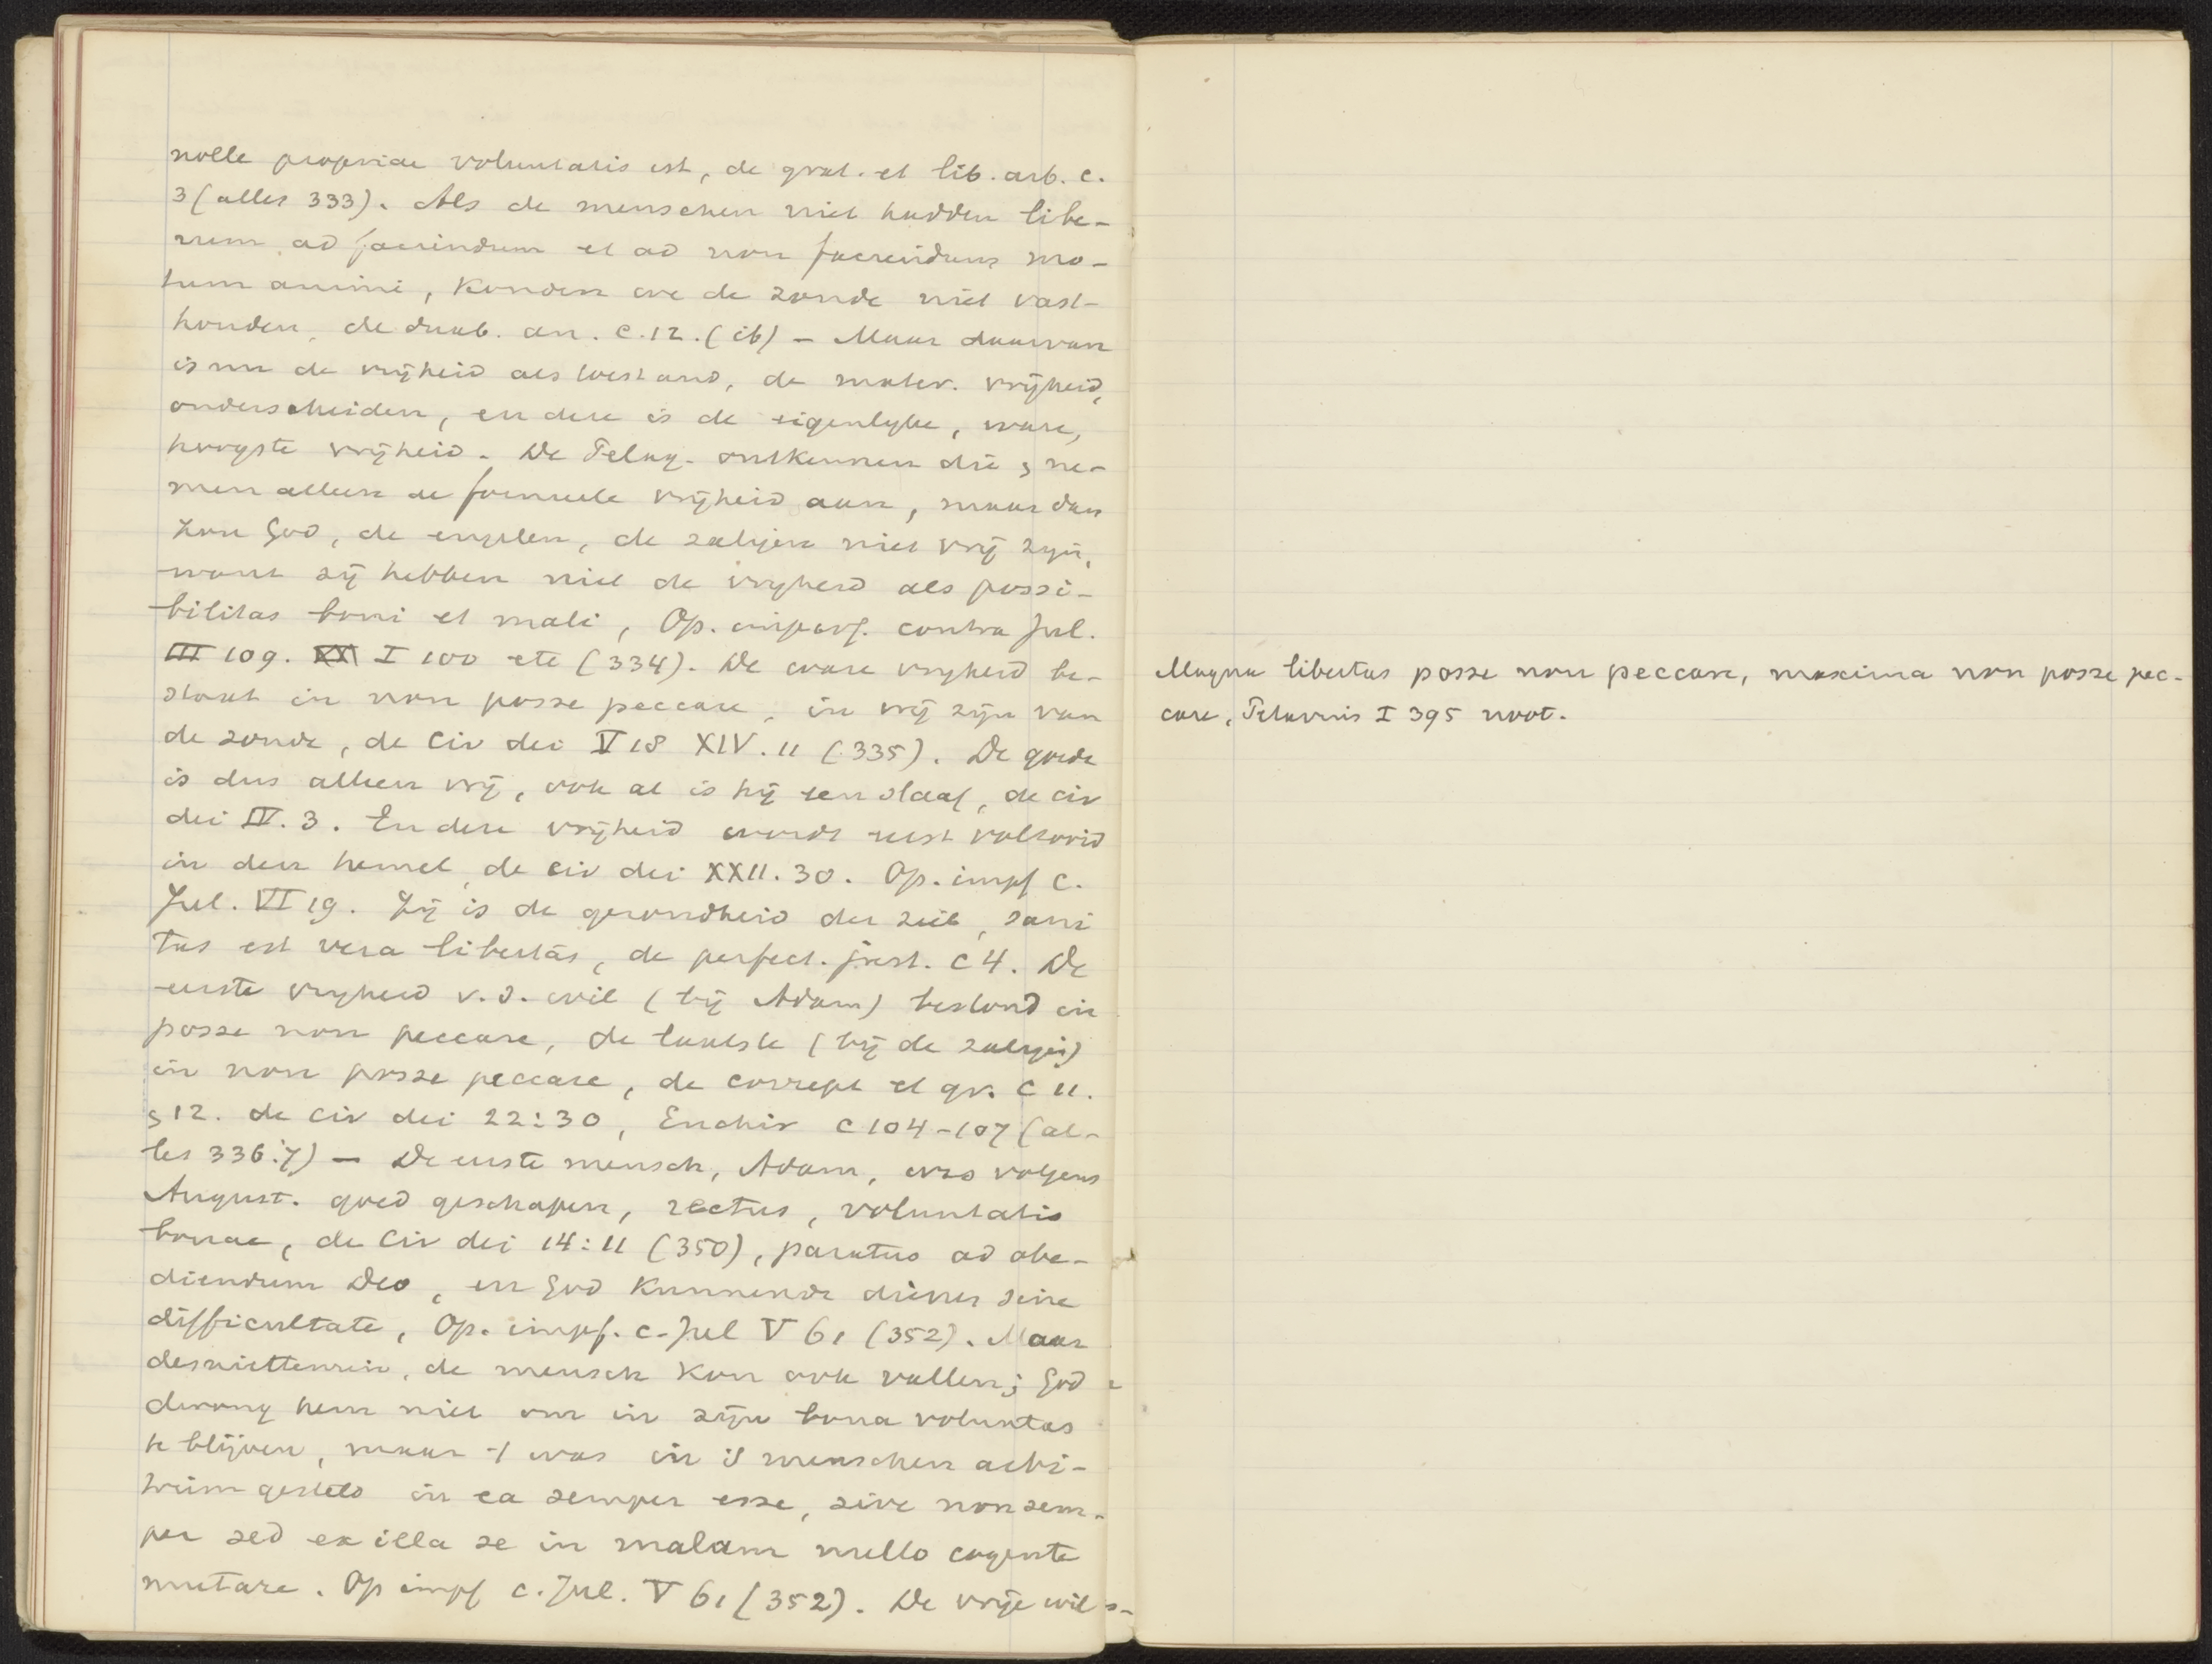 nolle propriae voluntatis est, de grat. et lib. arb. c.
3 (alles 333). Als de menschen niet hadden libe-
rum ad faciendum et ad non faciendum mo-
tum animi, konden we de zonde niet vast-
houden, de duab. an. c. 12. (ib) – Maar daarvan
is nu de vrijheid als toestand, de mater. vrijheid,
onderscheiden, en deze is de eigenlyke, ware,
hoogste vrijheid. De Pelag. ontkennen die & ne-
men alleen de formeele vrijheid aan, maar dan
zou God, de engelen, de zaligen niet vrij zijn,
want zij hebben niet de vryheid als possi-
bilitas boni et mali, Op. imperf. contra Jul.
III 109. XXI I 100 etc (334). De ware vryheid be-
staat in non posse peccare, in vrij zijn van
de zonde, de civ dei V 18 XIV. 11 (335). De goede
is dus alleen vrij, ook al is hij een slaaf, de civ
dei IV. 3. En deze vrijheid wordt eerst voltooid
in den hemel, de civ dei XXII. 30. Op. impf c.
Jul. VI 19. Zij is de gezondheid der ziel, sani
tas est vera libertas, de perfect. just. c 4. De
eerste vryheid v. d. wil (bij Adam) bestond in
posse non peccare, de laatste (bij de zaligen)
in non posse peccare, de corrept et gr. c 11.
& 12. de civ dei 22:30, Enchir c 104-107 (al-
les 336:7) – De eerste mensch, Adam, was volgens
August. goed geschapen, rectus, voluntatis
bonae, de Civ dei 14:11 (350), paratus ad obe-
diendum Deo, en God kunnende dienen sine
difficultate, Op. impf. c. Jul V 61 (352). Maar
desniettemin, de mensch kon ook vallen; God
dwong hem niet om in zijn bona voluntas
te blijven, maar 't was in 's menschen arbi-
trium gesteld in ea semper esse, sive non sem-
per sed ex illa se in malam nullo cogente
mutare. Op impf c. Jul. V 61 (352). De vrije wils-
Magna libertas posse non peccare, maxima non posse pec-
care, Petavius I 395 noot.